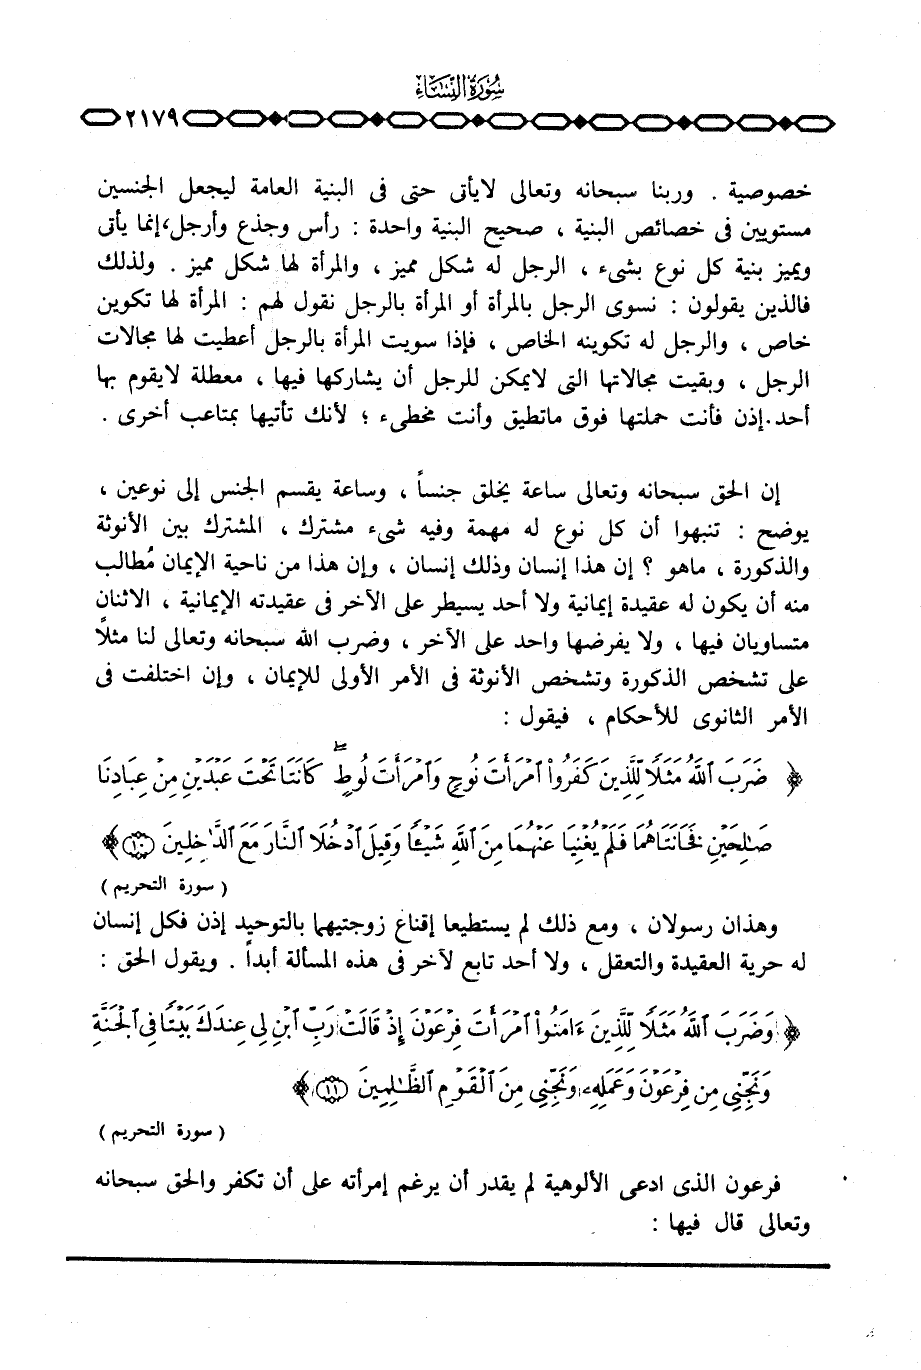 سورة النساء
٢١٧٩
خصوصية . وربنا سبحانه وتعالى لايأتى حتى فى البنية العامة ليجعل الجنسين
مستويين فى خصائص البنية ، صحيح البنية واحدة : رأس وجذع وأرجل،إنما يأتى
ويميز بنية كل نوع بشىء ، الرجل له شكل مميز ، والمرأة لها شكل مميز . ولذلك
فالذين يقولون : نسوى الرجل بالمرأة أو المرأة بالرجل نقول لهم : المرأة لها تكوين
خاص ، والرجل له تكوينه الخاص ، فإذا سويت المرأة بالرجل أعطيت لها مجالات
الرجل ، وبقيت مجالاتها التى لايمكن للرجل أن يشاركها فيها ، معطلة لايقوم بها
أحد.إذن فأنت حملتها فوق ماتطيق وأنت مخطىء ؛ لأنك تأتيها بمتاعب أخرى .
إن الحق سبحانه وتعالى ساعة يخلق جنساً ، وساعة يقسم الجنس إلى نوعين ،
يوضح : تنبهوا أن كل نوع له مهمة وفيه شىء مشترك ، المشترك بين الأنوثة
والذكورة ، ماهو ؟ إن هذا إنسان وذلك إنسان ، وإن هذا من ناحية الإيمان مُطالب
منه أن يكون له عقيدة إيمانية ولا أحد يسيطر على الآخر فى عقيدته الإيمانية ، الاثنان
متساويان فيها ، ولا يفرضها واحد على الآخر ، وضرب الله سبحانه وتعالى لنا مثلاً
على تشخص الذكورة وتشخص الأنوثة فى الأمر الأولى للإيمان ، وإن اختلفت فى
الأمر الثانوى للأحكام ، فيقول :
﴿ ضَرَبَ ٱللَّهُ مَثَلًا لِّلَّذِينَ كَفَرُوا۟ ٱمْرَأَتَ نُوحٍ وَٱمْرَأَتَ لُوطٍۖ كَانَتَا تَحْتَ عَبْدَيْنِ مِنْ عِبَادِنَا
صَـٰلِحَيْنِ فَخَانَتَاهُمَا فَلَمْ يُغْنِيَا عَنْهُمَا مِنَ ٱللَّهِ شَيْـًٔا وَقِيلَ ٱدْخُلَا ٱلنَّارَ مَعَ ٱلدَّٰخِلِينَ ١٠ ﴾
( سورة التحريم )
وهذان رسولان ، ومع ذلك لم يستطيعا إقناع زوجتيهما بالتوحيد إذن فكل إنسان
له حرية العقيدة والتعقل ، ولا أحد تابع لآخر فى هذه المسألة أبداً . ويقول الحق :
﴿ وَضَرَبَ ٱللَّهُ مَثَلًا لِّلَّذِينَ ءَامَنُوا۟ ٱمْرَأَتَ فِرْعَوْنَ إِذْ قَالَتْ رَبِّ ٱبْنِ لِى عِندَكَ بَيْتًا فِى ٱلْجَنَّةِ
وَنَجِّنِى مِن فِرْعَوْنَ وَعَمَلِهِۦ وَنَجِّنِى مِنَ ٱلْقَوْمِ ٱلظَّـٰلِمِينَ ١١ ﴾
( سورة التحريم )
فرعون الذى ادعى الألوهية لم يقدر أن يرغم إمرأته على أن تكفر والحق سبحانه
وتعالى قال فيها :